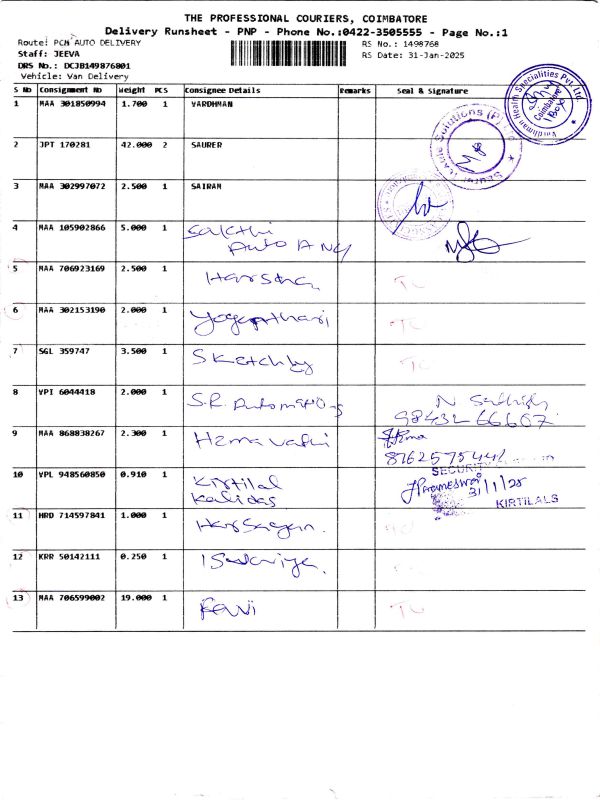 THE PROFESSIONAL COURIERS, COIMBATORE
Delivery Runsheet - PNP - Phone No.:0422-3505555 - Page No.:1
Route: PCN AUTO DELIVERY
RS No.: 1498768
Staff: JEEVA
RS Date: 31-Jan-2025
DRS No.: DCJB149876801
Vehicle: Van Delivery
S No Consignment No Weight PCS Consignee Details Remarks Seal & Signature
1 MAA 301850994 1.700 1 VARDHMAN
Vardhman Health Specialities Pvt. Ltd. Coimbatore
2 JPT 170281 42.000 2 SAURER
3 MAA 302997072 2.500 1 SAIRAM
4 MAA 105902866 5.000 1 Sakthi
Auto
5 MAA 706923169 2.500 1
6 MAA 302153190 2.000 1
7 SGL 359747 3.500 1
8 VPI 6044418 2.000 1 S.R. Automations
98432 66607
9 MAA 868838267 2.300 1 Hemavathi
Hema
10 VPL 948560850 0.910 1 Kirtilal
Kalidas
SECURITY
31/1/25
KIRTILALS
11 HRD 714597841 1.000 1
12 KRR 50142111 0.250 1
13 MAA 706599002 19.000 1